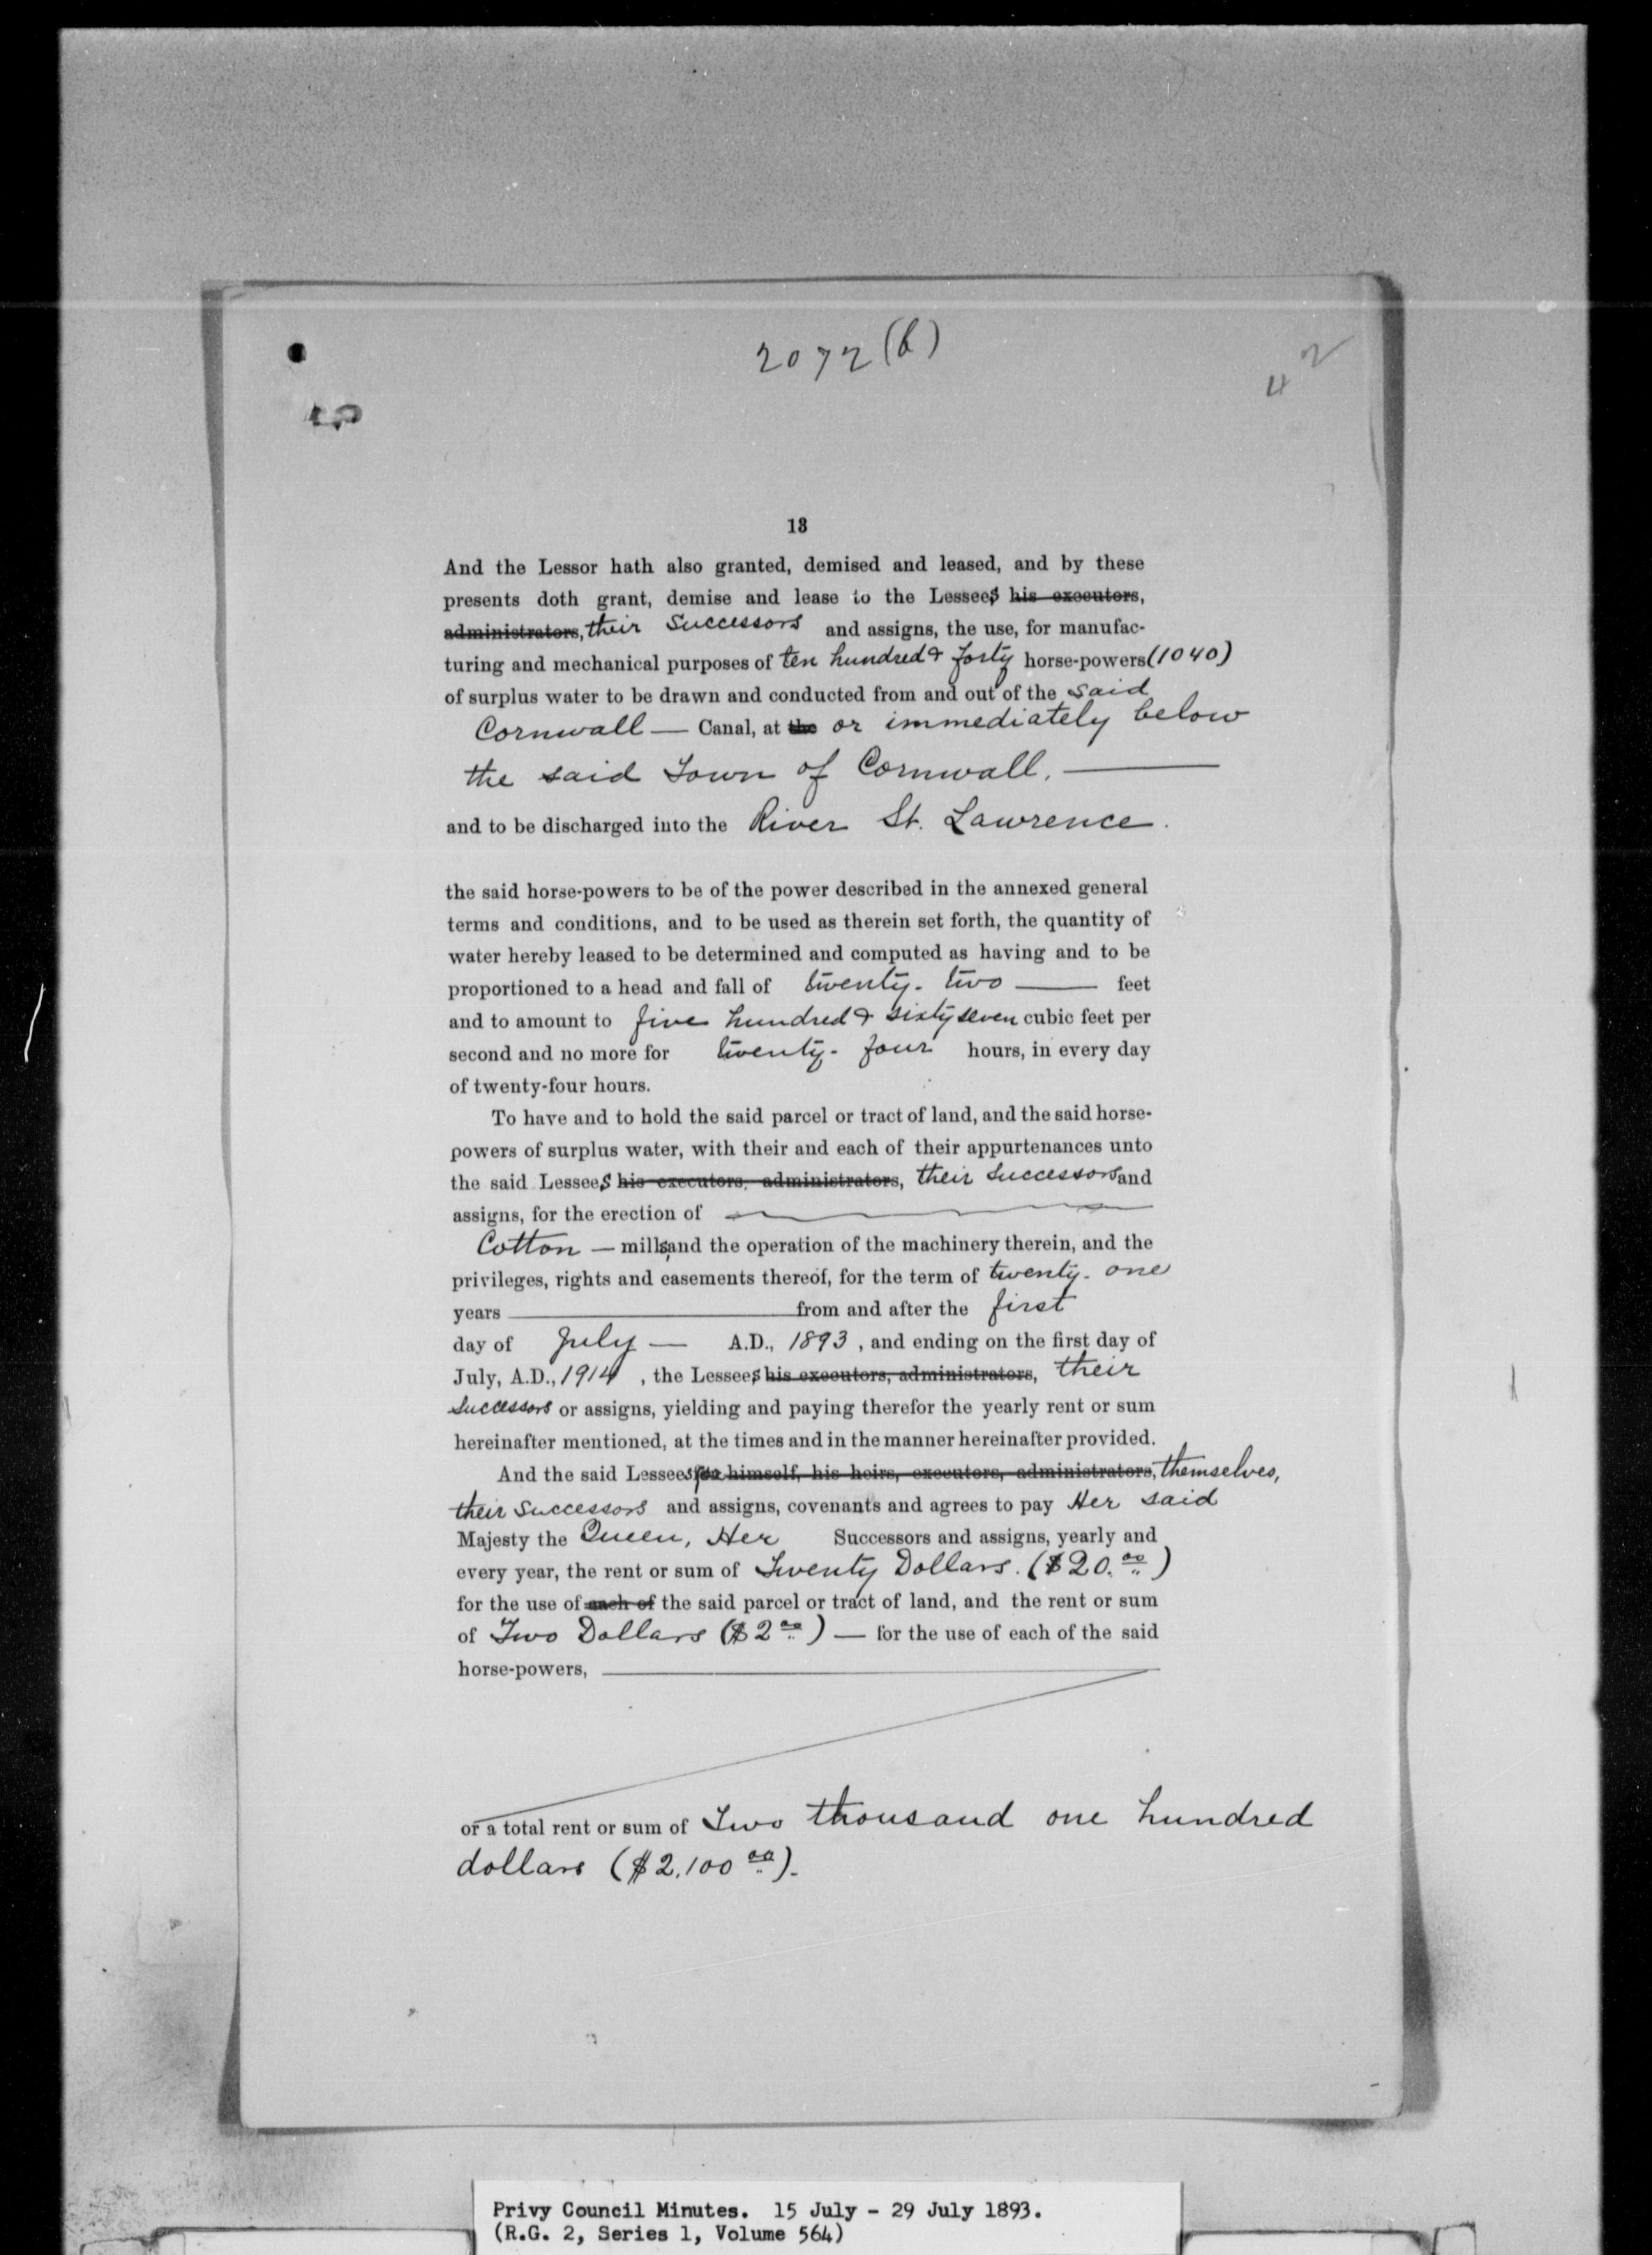 2072(b)
42
13
And the Lessor hath also granted, demised and leased, and by these
presents doth grant, demise and lease to the Lessees his executors,
administrators, their Successors and assigns, the use, for manufac-
turing and mechanical purposes of ten hundred & forty horse-powers (1040)
of surplus water to be drawn and conducted from and out of the said
Cornwall — Canal, at the or immediately below
the said Town of Cornwall. —
and to be discharged into the River St. Lawrence.
the said horse-powers to be of the power described in the annexed general
terms and conditions, and to be used as therein set forth, the quantity of
water hereby leased to be determined and computed as having and to be
proportioned to a head and fall of twenty-two — feet
and to amount to five hundred & sixty seven cubic feet per
second and no more for twenty-four hours, in every day
of twenty-four hours.
To have and to hold the said parcel or tract of land, and the said horse-
powers of surplus water, with their and each of their appurtenances unto
the said Lessees his executors, administrators, their Successors and
assigns, for the erection of
Cotton — mills, and the operation of the machinery therein, and the
privileges, rights and easements thereof, for the term of twenty-one
years — from and after the first
day of July — A.D., 1893, and ending on the first day of
July, A.D., 1914, the Lessees his executors, administrators, their
Successors or assigns, yielding and paying therefor the yearly rent or sum
hereinafter mentioned, at the times and in the manner hereinafter provided.
And the said Lessees for himself, his heirs, executors, administrators, themselves,
their Successors and assigns, covenants and agrees to pay Her said
Majesty the Queen, Her Successors and assigns, yearly and
every year, the rent or sum of Twenty Dollars. ($20.00)
for the use of each of the said parcel or tract of land, and the rent or sum
of Two Dollars ($2 00) — for the use of each of the said
horse-powers, —
or a total rent or sum of Two thousand one hundred
dollars ($2,100 00).
Privy Council Minutes. 15 July - 29 July 1893.
(R.G. 2, Series 1, Volume 564)